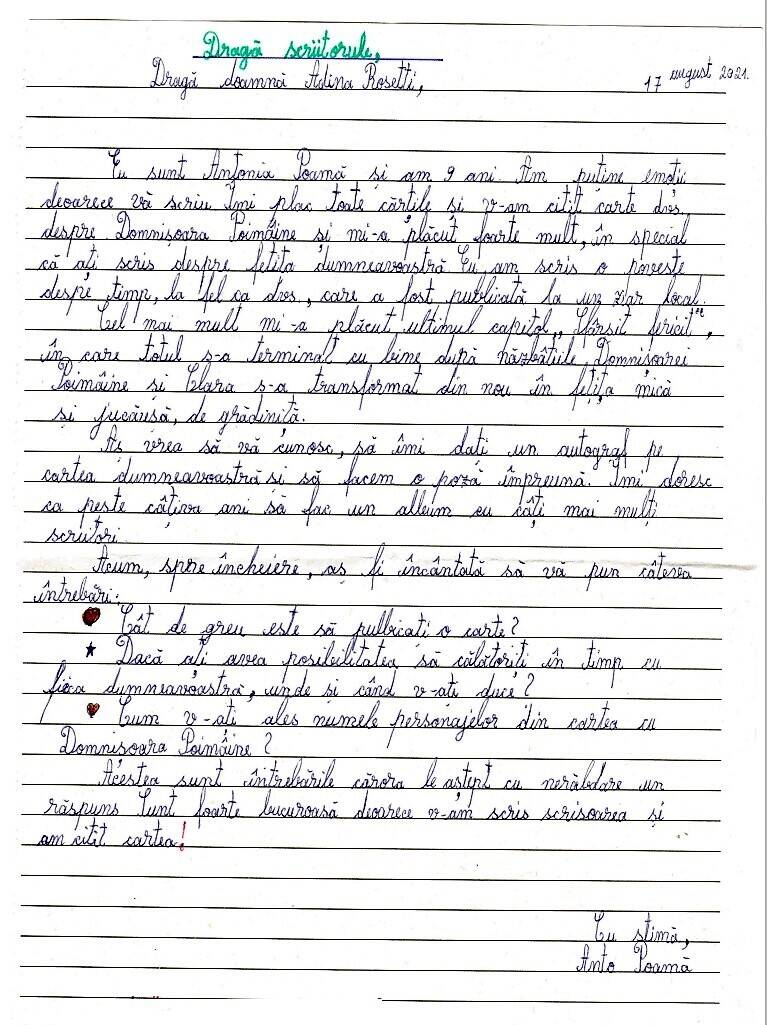 Dragă scriitorule,
Dragă doamnă Adina Rosetti,
17 august 2021.
Eu sunt Antonia Poamă și am 9 ani. Am puține emoții
deoarece vă scriu. Îmi plac toate cărțile și v-am citit carte dvs.
despre Domnișoara Poimâine și mi-a plăcut foarte mult, în special
că ați scris despre fetița dumneavoastră. Eu am scris o poveste
despre timp, la fel ca dvs., care a fost publicată la un ziar local.
Cel mai mult mi-a plăcut ultimul capitol „Sfârșit fericit",
în care totul s-a terminat cu bine după năzbâtiile Domnișoarei
Poimâine și Clara s-a transformat din nou în fetița mică
și jucăușă, de grădiniță.
Aș vrea să vă cunosc, să îmi dați un autograf pe
cartea dumneavoastră și să facem o poză împreună. Îmi doresc
ca peste câțiva ani să fac un album cu câți mai mulți
scriitori.
Acum, spre încheiere, aș fi încântată să vă pun câteva
întrebări:
Cât de greu este să publicați o carte?
Dacă ați avea posibilitatea, să călătoriți în timp cu
fiica dumneavoastră, unde și când v-ați duce?
Cum v-ați ales numele personajelor din cartea cu
Domnișoara Poimâine?
Acestea sunt întrebările cărora le aștept cu nerăbdare un
răspuns. Sunt foarte bucuroasă deoarece v-am scris scrisoarea și
am citit cartea!
Cu stimă,
Anto Poamă